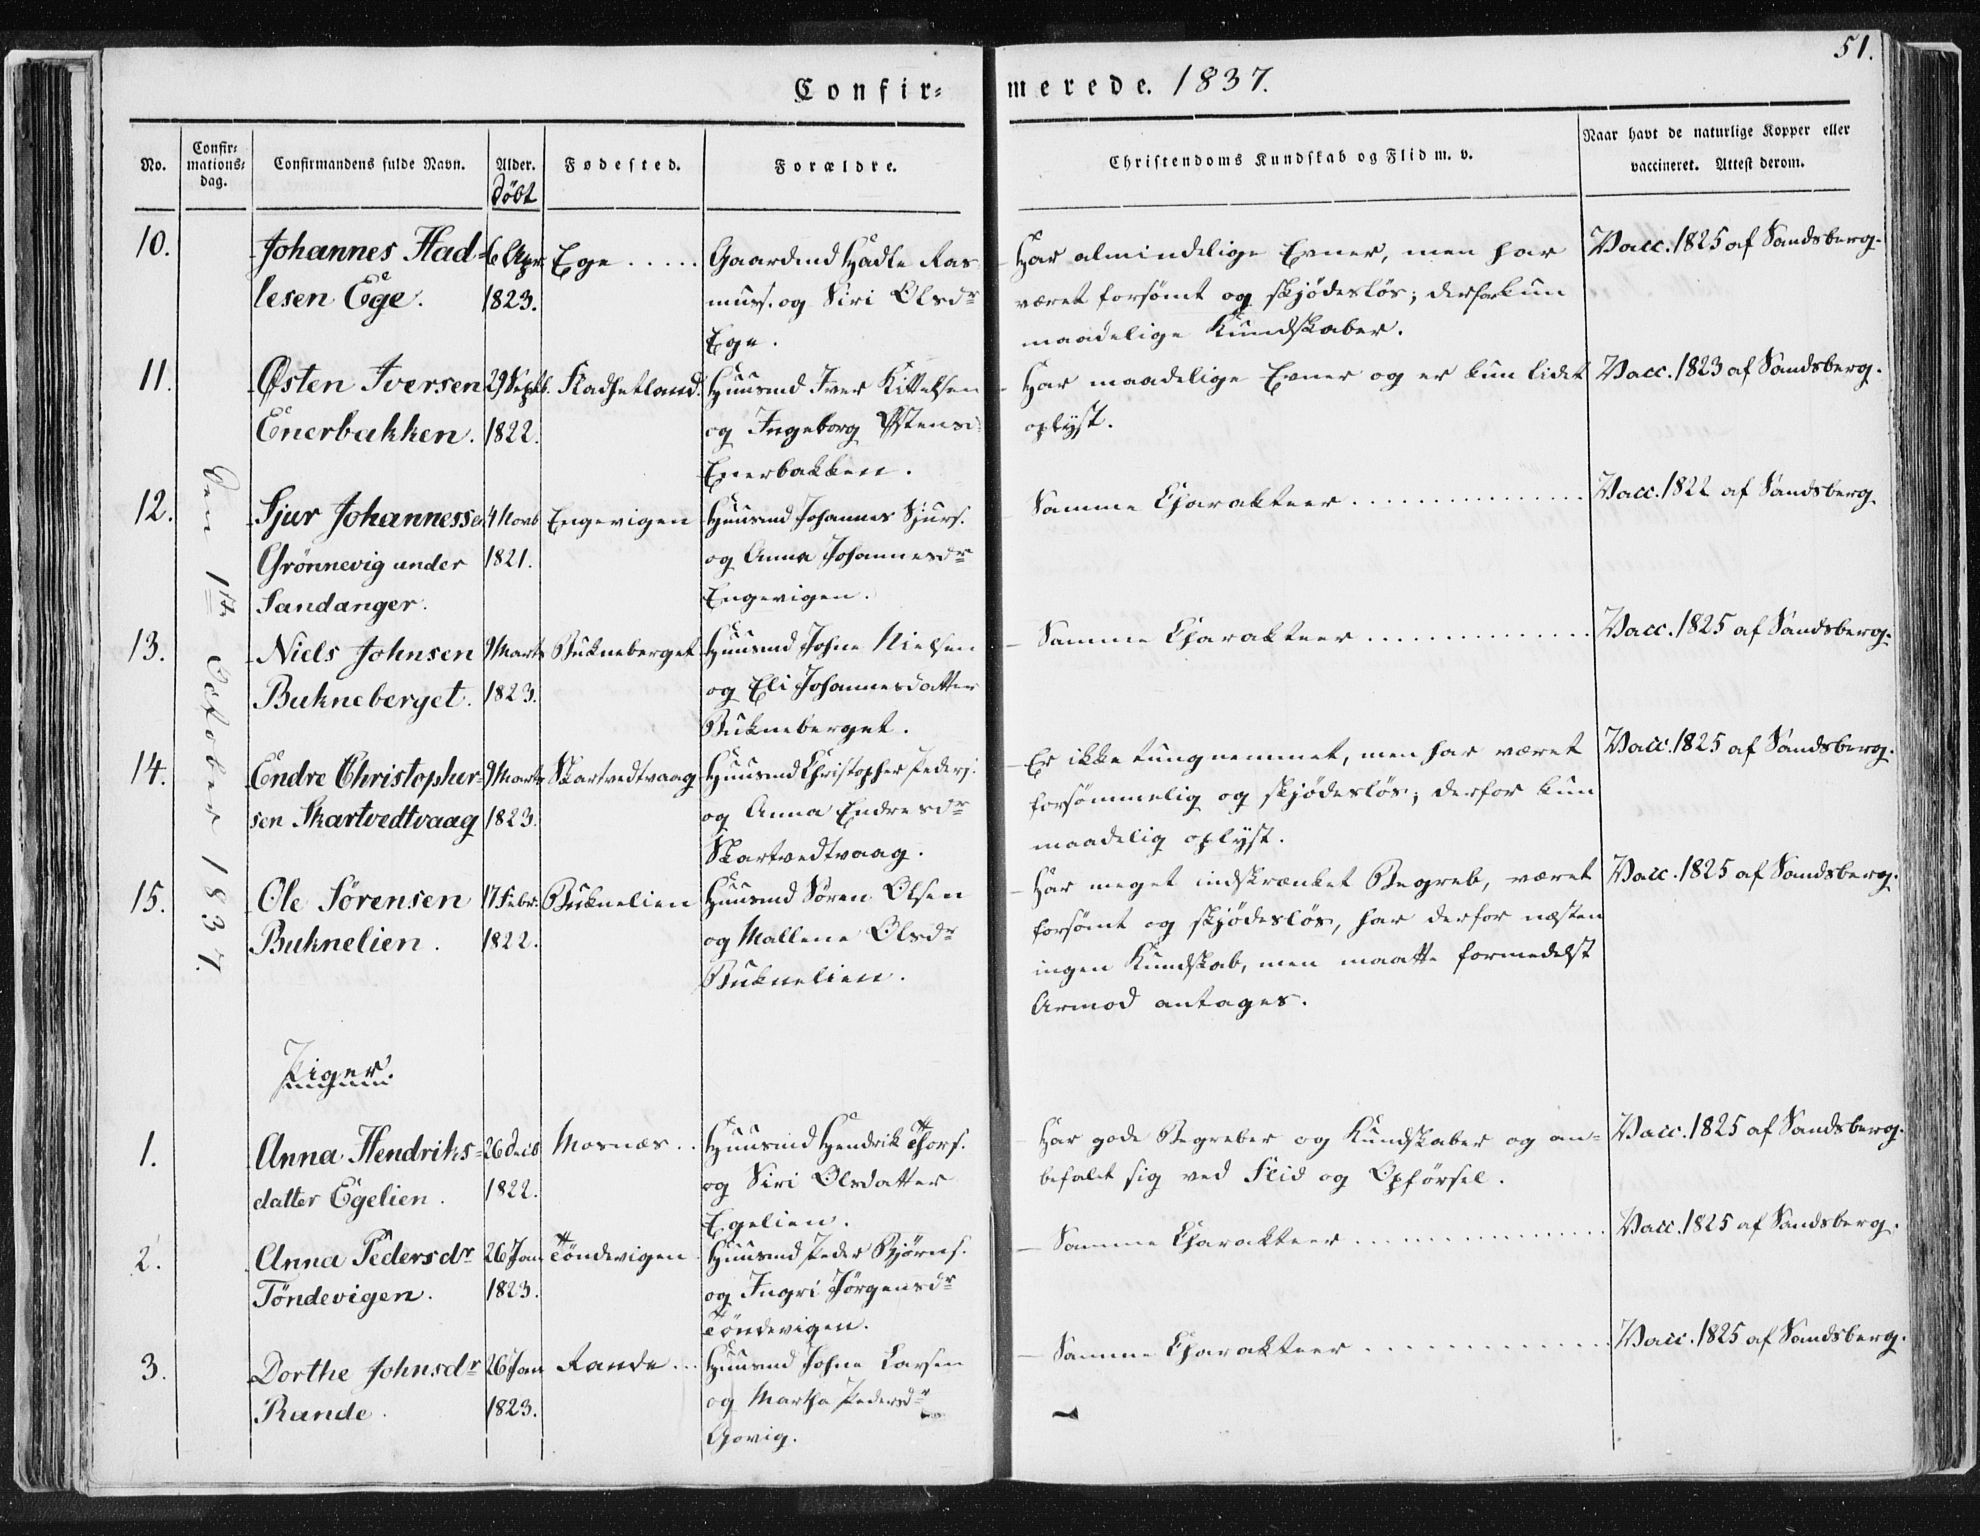 51.
Confir=
merede. 1837.
No.
Confir=
mations=
dag.
Confirmandens fulde Navn.
Alder.
döbt
Fødested.
Forældre.
Christendoms Kundskab og Flid m. v.
Naar havt de naturlige Kopper eller
vaccineret. Attest derom.
Den 1ste October 1837.
10.
Johannes Had=
lesen Ege.
6 Apr.
1823.
Ege .....
Gaardmd Hadle Ras
muss. og Siri Olsdr
Ege.
Har almindelige Evner, men har
været forsömt og skjödeslös; derfor kun
maadelige Kundskaber.
Vacc. 1825 af Sandsberg.
11.
Østen Iversen
Enerbakken.
29 Septb.
1822.
Stadhetland.
Huusmd Iver Kittelsen
og Ingeborg Østens
Enerbakken.
Har maadelige Evner og er kun lidet
oplyst.
Vacc. 1823 af Sandsberg.
12.
Sjur Johannessen
Grönnevig under
Sandanger.
4 Novb
1821.
Engevigen
Huusmd Johannes Sjurs.
og Anna Johannesdr
Engevigen.
Samme Charakteer ...............
Vacc. 1822 af Sandsberg.
13.
Niels Johnsen
Bukneberget.
9 Marts
1823.
Bukneberget
Huusmd Johne Nielsen
og Eli Johannesdatter
Bukneberget.
Samme Charakteer ...............
Vacc. 1825 af Sandsberg.
14.
Endre Christopher=
sen Skartvedtvaag
9 Marts
1823.
Skartvedtvaag
Huusmd Christopher Peders.
og Anna Endresdr
Skartvedtvaag.
Er ikke tungnemmet, men har været
forsömmelig og skjödeslös; derfor kun
maadelig oplyst.
Vacc. 1825 af Sandsberg.
15.
Ole Sörensen
Buknelien.
17 Febr.
1822.
Buknelien
Huusmd Sören Olsen
og Mallene Olsdr
Buknelien.
Har meget indskrænket Begreb, været
forsömt og skjödeslös, har derfor næsten
ingen Kundskab, men maatte formedelst
Armod antages.
Vacc. 1825 af Sandsberg.
Piger.
1.
Anna Hendriks=
datter Egelien.
26 Decb
1822.
Mosnæs ..
Huusmd Hendrik Thors.
og Siri Olsdatter
Egelien.
Har gode Begreber og Kundskaber og an=
befalet sig ved Flid og Opförsel.
Vacc. 1825 af Sandsberg.
2.
Anna Pedersdr
Töndevigen.
26 Jan
1823.
Töndevigen
Huusmd Peder Björns.
og Ingri Jörgensdr
Töndevigen.
Samme Charakteer ...............
Vacc. 1825 af Sandsberg.
3.
Dorthe Johnsdr
Rande.
26 Jan
1823.
Rande ...
Huusmd Johne Larsen
og Martha Pedersdr
Govig.
Samme Charakteer ...............
Vacc. 1825 af Sandsberg.